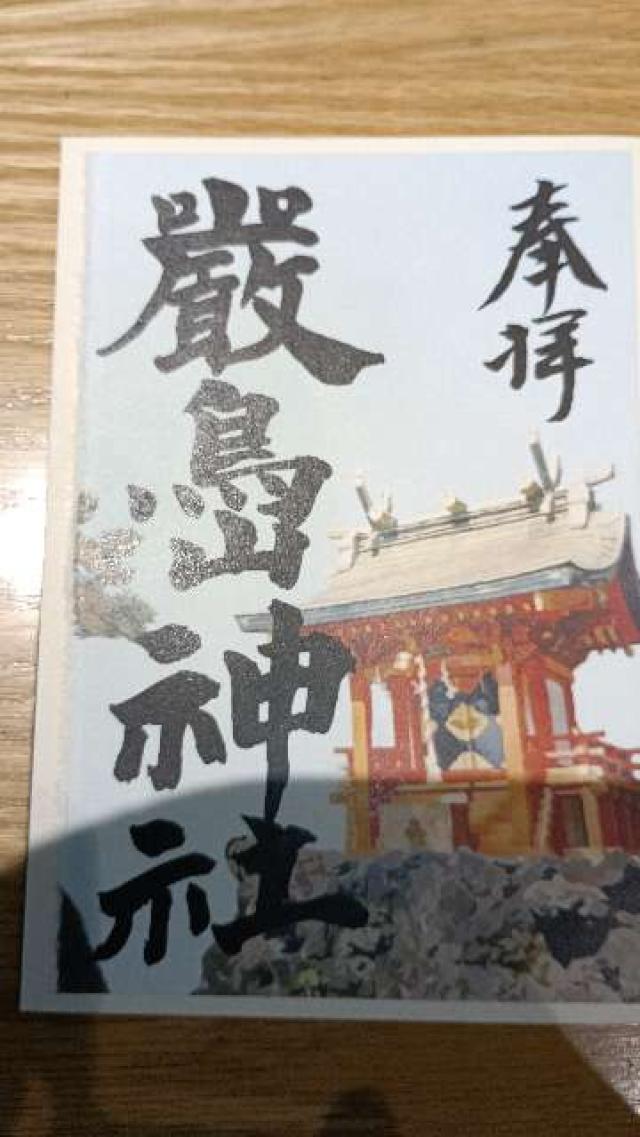 奉拝
嚴島神社